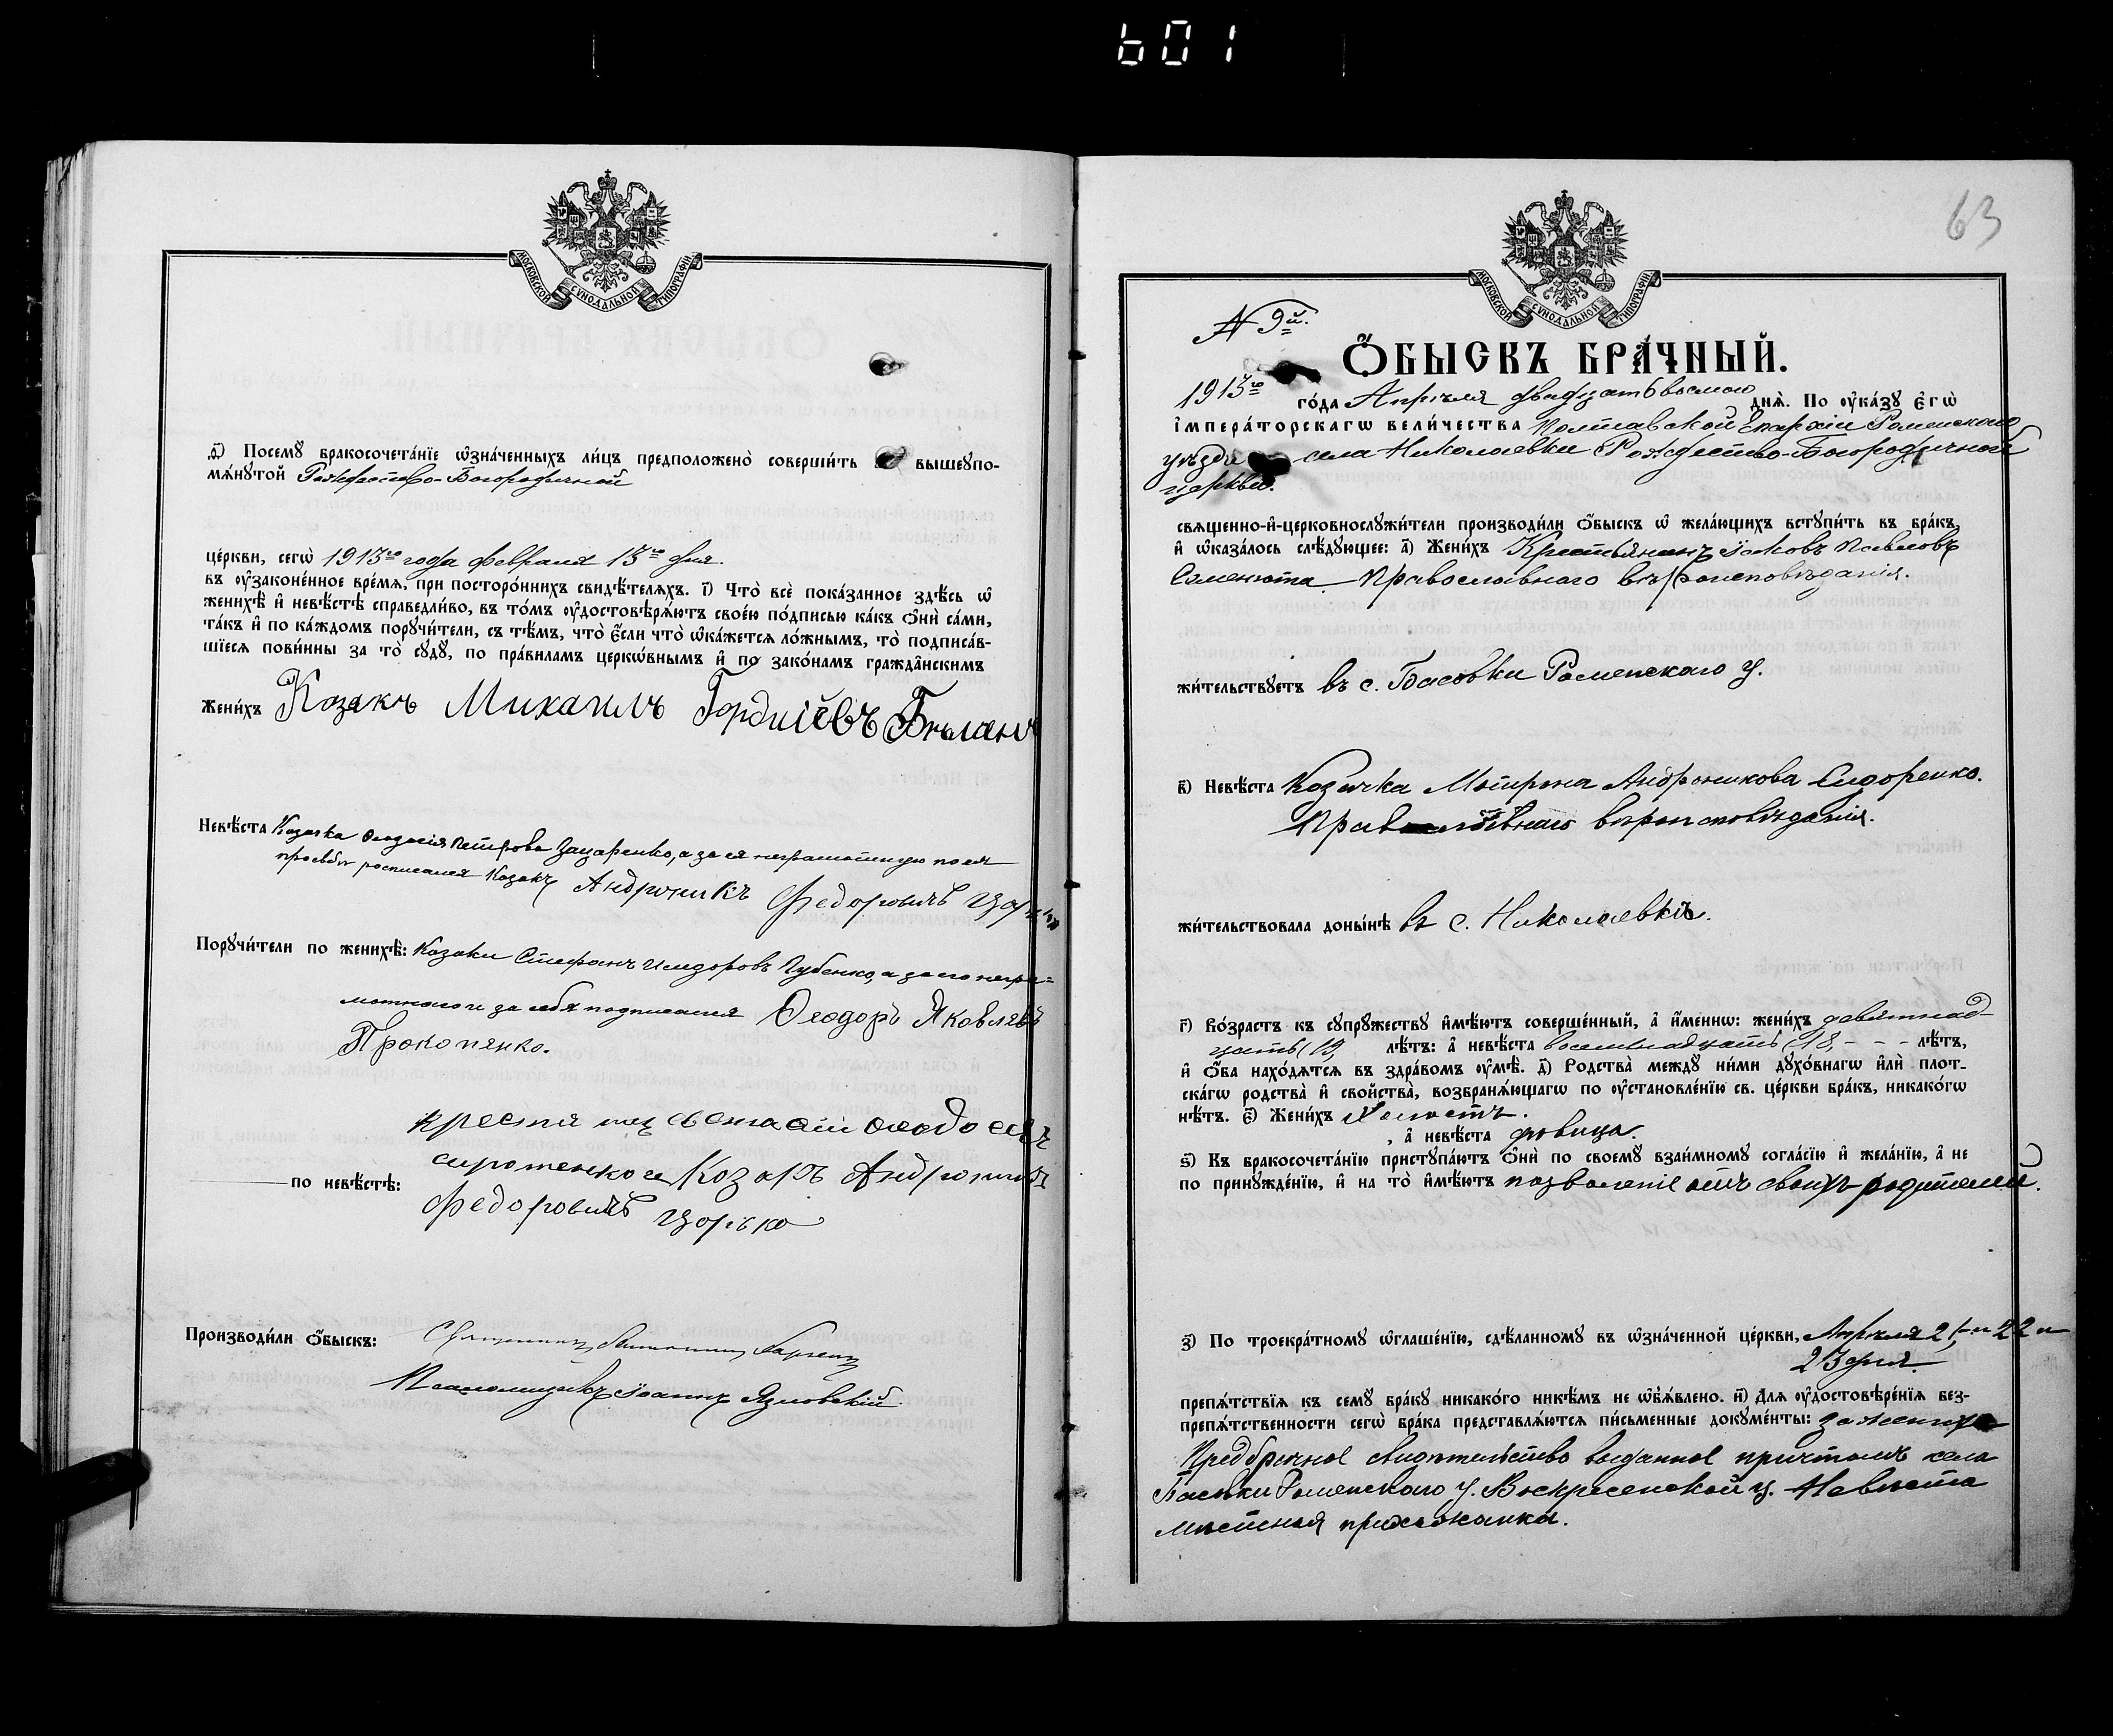 601
МОСКОВСКОЙ СѴНОДАЛЬНОЙ ТИПОГРАФІИ
Посемꙋ бракосочета́нїе ѡ҆зна́ченныхъ ли́цъ предположено̀ соверши́ть вышеꙋпо-
мѧ́нꙋтой Рождество-Богородичной
це́ркви, сегѡ̀ 1913го года февраля 13го дня.
въ ᲂу҆зако́не́нное вре́мѧ, при посторо́ннихъ свидѣ́телѧхъ. і҃) Что̀ всѐ пока́занное здѣ́сь ѡ҆
женихѣ̀ и҆ невѣ́стѣ справедли́во, въ то́мъ ᲂу҆достовѣрѧ́ютъ свое́ю по́дписью ка́къ ѻ҆нѝ са́ми,
та́къ и҆ по ка́ждомъ порꙋчи́тели, съ тѣ́мъ, что̀ є҆́сли что̀ ѡ҆ка́жетсѧ ло́жнымъ, то̀ подписа́в-
шїесѧ пови́нны за то̀ сꙋдꙋ̀, по пра́виламъ церкѡ́внымъ и҆ по зако́намъ гражда́нскимъ
Жени́хъ Козакъ Михаилъ Гордиiевъ Бѣланъ
Невѣ́ста Козачка Ѳеодосія Петрова Захаренко, а за ея неграмотную по ея
просьбѣ росписался Козакъ Андроникъ Федоровичъ Царько
Порꙋчи́тели по женихѣ̀: Козаки Стефанъ Исидоровъ Губенко, а за его негра=
мотного и за себя подписался Ѳеодоръ Яковлевъ
Прокопенко.
Ѳеодосіевъ
по невѣ́стѣ: сиротенко и Козакъ Андроникъ
Федоровичъ Царько
Производи́ли ѻ҆́быскъ: Священникъ
Псаломщикъ Іоаннъ Язловскій.
63
МОСКОВСКОЙ СѴНОДАЛЬНОЙ ТИПОГРАФІИ
N 9й.
Ѻ҆́БЫСКЪ БРА́ЧНЫЙ.
1913го го́да Апрѣля двадцать восьмого днѧ̀. По ᲂу҆ка́зꙋ є҆гѡ̀
і҆мпера́торскагѡ вели́чества Полтавской Епархіи Роменскаго
уѣзда села Николаевки Рождество-Богородичной
церкви.
свѧщенно-и҆-церковнослꙋжи́тели производи́ли ѻ҆́быскъ ѡ҆ жела́ющихъ встꙋпи́ть въ бра́къ,
и҆ ѡ҆каза́лось слѣ́дꙋющее: а҃) Жени́хъ Крестьянинъ Іаковъ Павловъ
Семенюта Православнаго вѣроисповѣданія.
жи́тельствꙋетъ въ с. Басовки Роменскаго у.
в҃) Невѣ́ста Козачка Мотрона Андроникова Сидоренко.
Православнаго вѣроисповѣданія.
жи́тельствовала доны́нѣ въ с. Николаевкѣ.
г҃) Во́зрастъ къ сꙋпрꙋ́жествꙋ и҆мѣ́ютъ соверше́нный, а҆ и҆́меннѡ: жени́хъ девятнад-
цать (19, лѣ́тъ: а҆ невѣ́ста восемнадцать (18, - - - лѣ́тъ,
и҆ ѻ҆́ба нахо́дѧтсѧ въ здра́вомъ ᲂу҆мѣ̀. д҃) Родства̀ междꙋ̀ ни́ми дꙋхо́внагѡ и҆лѝ плот-
ска́гѡ родства̀ и҆ сво́йства̀, возбранѧ́ющагѡ по ᲂу҆становле́нїю св. це́ркви бра́къ, никако́гѡ
нѣ́тъ. є҃) Жени́хъ Холостъ.
, а҆ невѣ́ста дѣвица.
ѕ҃) Къ бракосочета́нїю пристꙋпа́ютъ ѻ҆нѝ по своемꙋ̀ взаи́мномꙋ согла́сїю и҆ жела́нїю, а҆ не
по принꙋжде́нїю, и҆ на то̀ и҆мѣ́ютъ позволеніе отъ своихъ родителей.
з҃) По троекра́тномꙋ ѡ҆глаше́нїю, сдѣ́ланномꙋ въ ѡ҆зна́ченной це́ркви, Апрѣля 21, и 22 и
23 дня.
препѧ́тствїѧ къ семꙋ̀ бра́кꙋ никако́го никѣ́мъ не ѡ҆б̾ѧ́влено. и҃) Длѧ ᲂу҆достовѣре́нїѧ без-
препѧ́тственности сегѡ̀ бра́ка представлѧ́ютсѧ пи́сьменные докꙋме́нты: за жениха
Предбрачное свидѣтельство выданное причтомъ села
Басовки Роменскаго у. Воскресенской ц. Невѣста
мѣстная прихожанка.